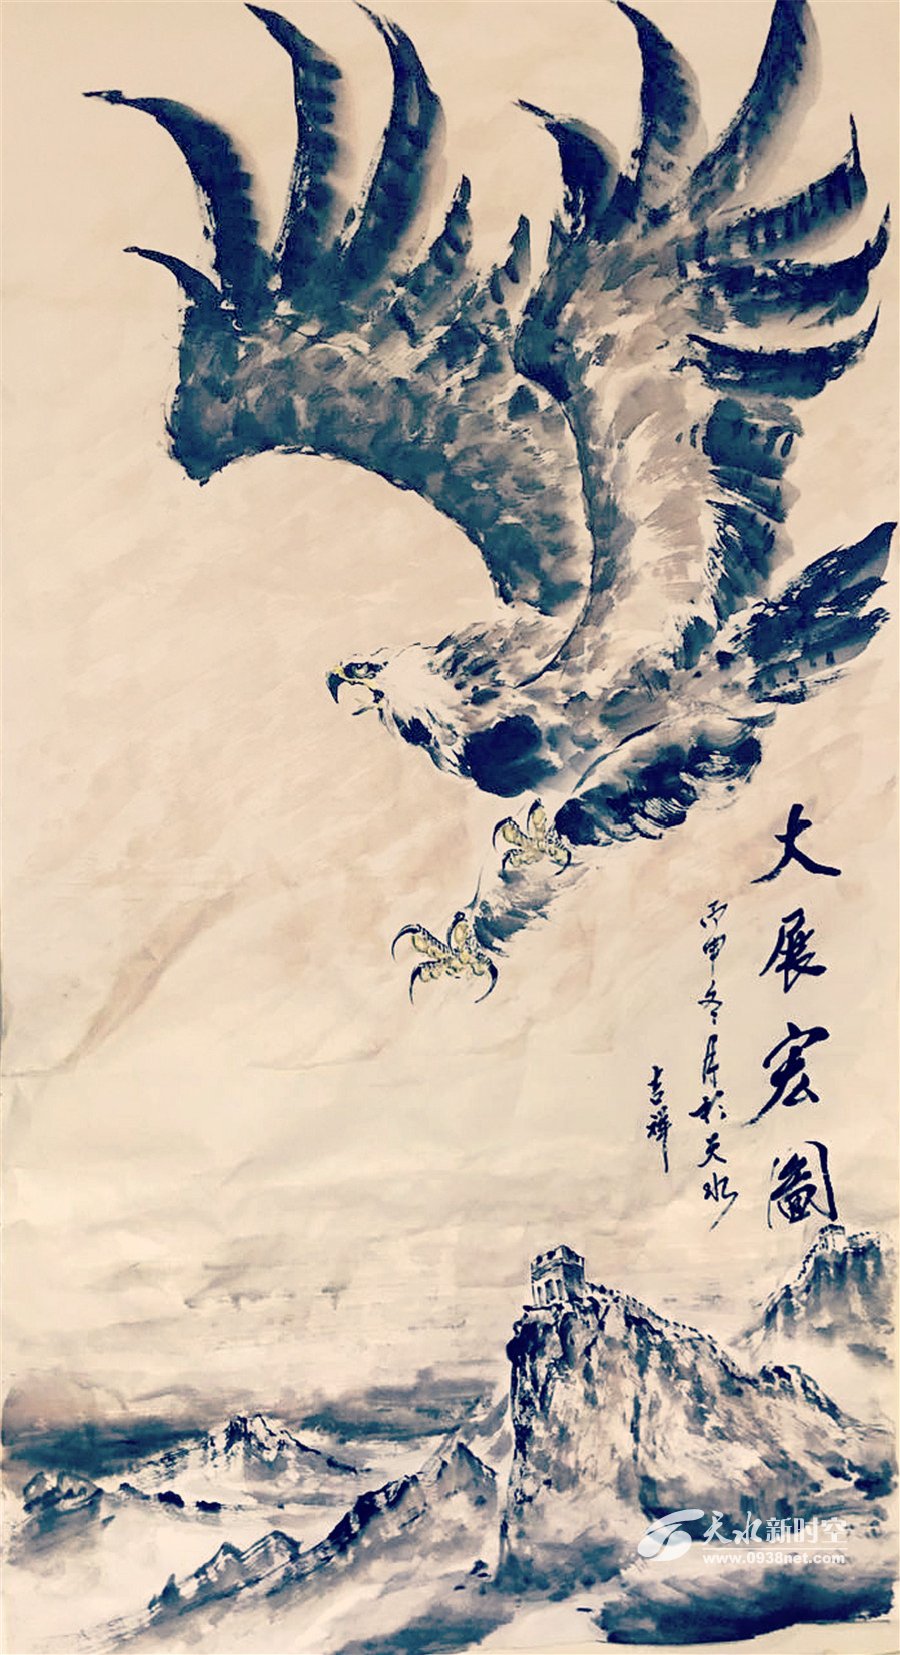 大展宏圖
丙申冬月於天水
吉祥
天水新时空
www.0938net.com